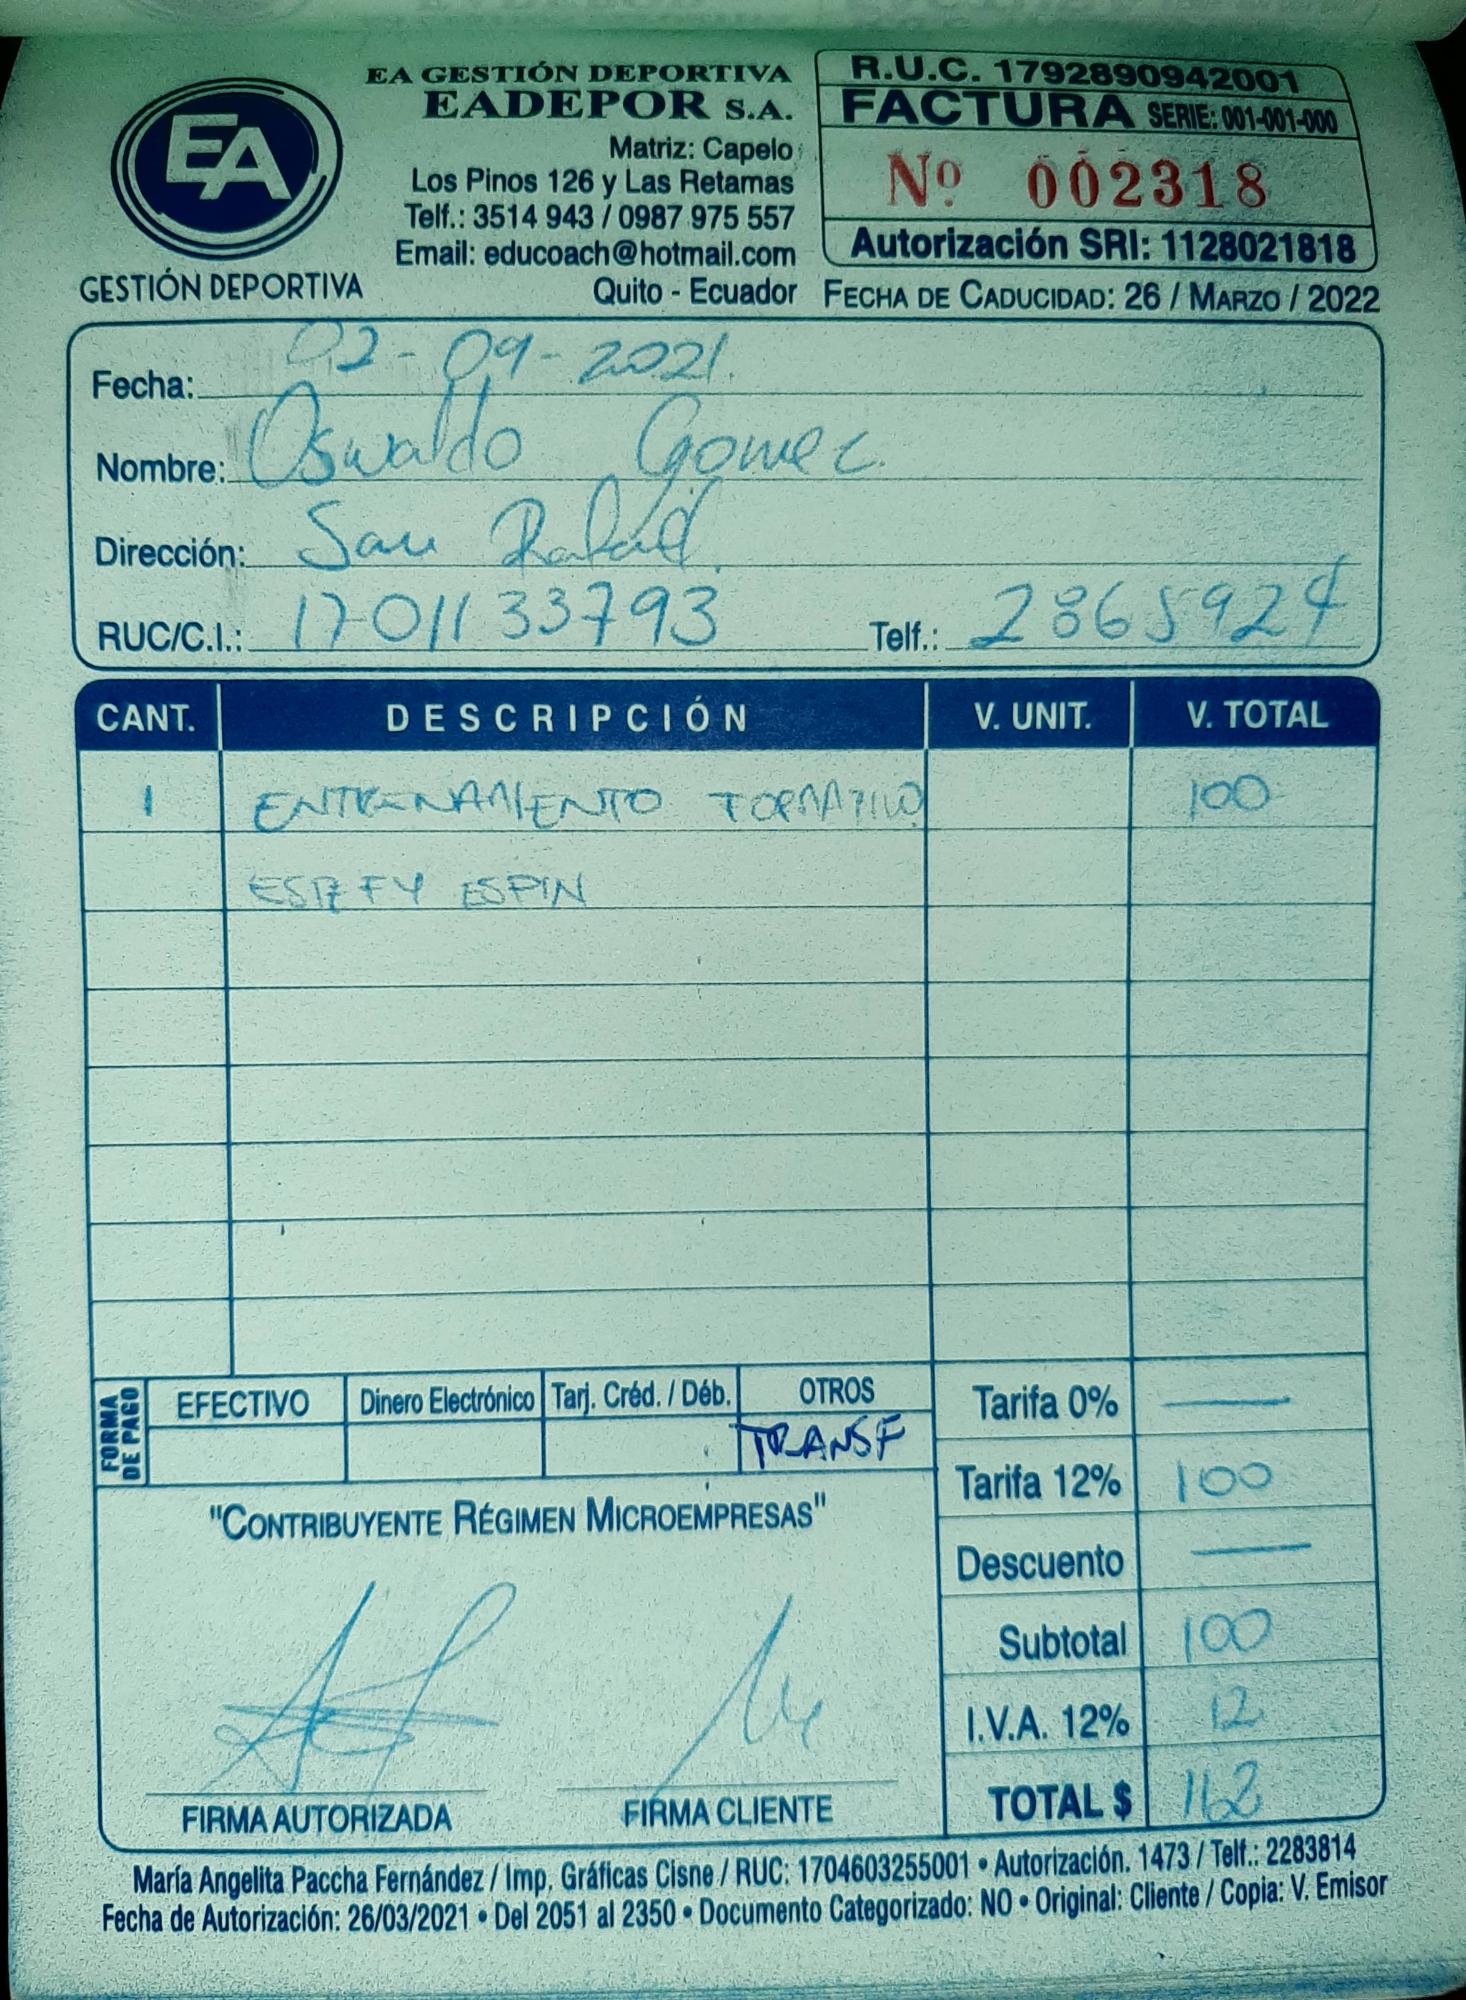 EA GESTIÓN DEPORTIVA
EADEPOR S.A.
Matriz: Capelo
Los Pinos 126 y Las Retamas
Telf.: 3514 943 / 0987 975 557
Email: educoach@hotmail.com
Quito - Ecuador
EA
GESTIÓN DEPORTIVA
R.U.C. 1792890942001
FACTURA SERIE: 001-001-000
Nº 002318
Autorización SRI: 1128021818
FECHA DE CADUCIDAD: 26 / MARZO / 2022
Fecha: 02-09-2021
Nombre: Oswaldo Gomez
Dirección: San Rafael
RUC/C.I.: 1701133793 Telf.: 2865924
CANT. DESCRIPCIÓN V. UNIT. V. TOTAL
1 ENTRENAMIENTO FORMATIVO 100
ESTEFY ESPIN
FORMA DE PAGO
EFECTIVO Dinero Electrónico Tarj. Créd. / Déb. OTROS
TRANSF
Tarifa 0% —
Tarifa 12% 100
Descuento —
Subtotal 100
I.V.A. 12% 12
TOTAL $
"CONTRIBUYENTE RÉGIMEN MICROEMPRESAS"
FIRMA AUTORIZADA FIRMA CLIENTE
María Angelita Paccha Fernández / Imp. Gráficas Cisne / RUC: 1704603255001 • Autorización. 1473 / Telf.: 2283814
Fecha de Autorización: 26/03/2021 • Del 2051 al 2350 • Documento Categorizado: NO • Original: Cliente / Copia: V. Emisor